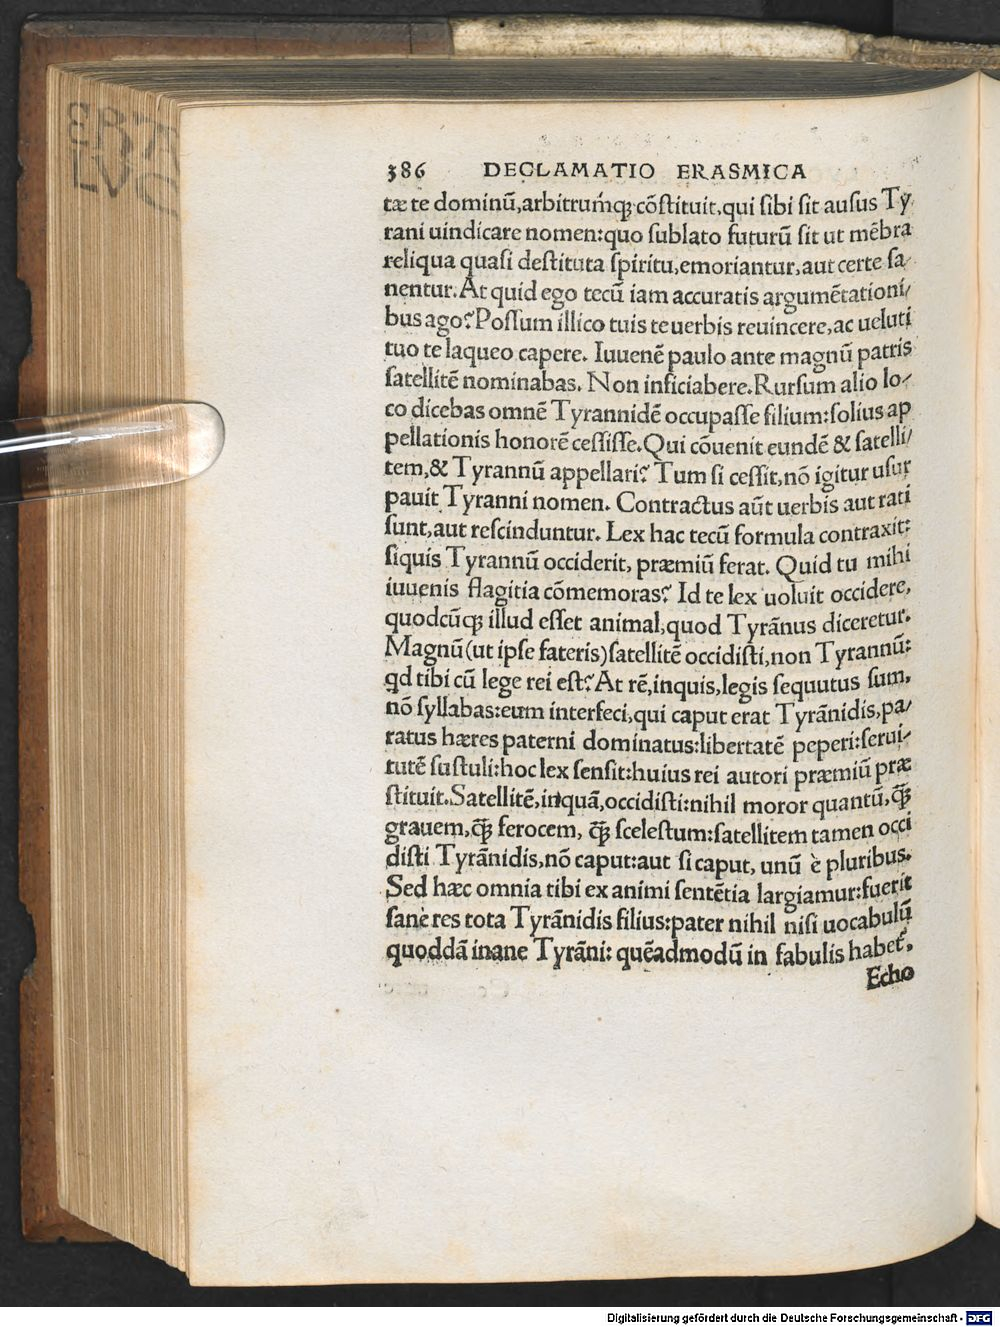 ERTA
LVC
386 DECLAMATIO ERASMICA
tæ te dominũ,arbitruḿq; cõſtituit,qui ſibi ſit auſus Ty
rani uindicare nomen:quo ſublato futurũ ſit ut mẽbra
reliqua quaſi deſtituta ſpiritu,emoriantur,aut certe ſa
nentur.At quid ego tecũ iam accuratis argumẽtationi/
bus ago? Poſſum illico tuis te uerbis reuincere,ac ueluti
tuo te laqueo capere. Iuuenẽ paulo ante magnũ patris
ſatellitẽ nominabas. Non inficiabere.Rurſum alio lo/
co dicebas omnẽ Tyrannidẽ occupaſſe filium:ſolius ap
pellationis honorẽ ceſſiſſe.Qui cõuenit eundẽ & ſatelli/
tem,& Tyrannũ appellari? Tum ſi ceſſit,nõ igitur uſur
pauit Tyranni nomen. Contractus aũt uerbis aut rati
ſunt,aut reſcinduntur. Lex hac tecũ formula contraxit:
ſiquis Tyrannũ occiderit, præmiũ ferat. Quid tu mihi
iuuenis flagitia cõmemoras? Id te lex uoluit occidere,
quodcũq; illud eſſet animal,quod Tyrãnus diceretur.
Magnũ(ut ipſe fateris)ſatellitẽ occidiſti,non Tyrannũ:
qd tibi cũ lege rei eſt? At rẽ,inquis,legis ſequutus ſum,
nõ ſyllabas:eum interfeci,qui caput erat Tyrãnidis,pa/
ratus hæres paterni dominatus:libertatẽ peperi:ſerui/
tutẽ ſuſtuli:hoc lex ſenſit:huius rei autori præmiũ præ
ſtituit.Satellitẽ,inquã,occidiſti:nihil moror quantũ,q̃ꝫ
grauem,q̃ꝫ ferocem, q̃ꝫ ſceleſtum:ſatellitem tamen occi
diſti Tyrãnidis,nõ caput:aut ſi caput, unũ è pluribus.
Sed hæc omnia tibi ex animi ſentẽtia largiamur:fuerit
ſanè res tota Tyrãnidis filius:pater nihil niſi uocabulũ
quoddã inane Tyrãni: quẽadmodũ in fabulis habet᷑,
Echo
Digitalisierung gefördert durch die Deutsche Forschungsgemeinschaft - DFG